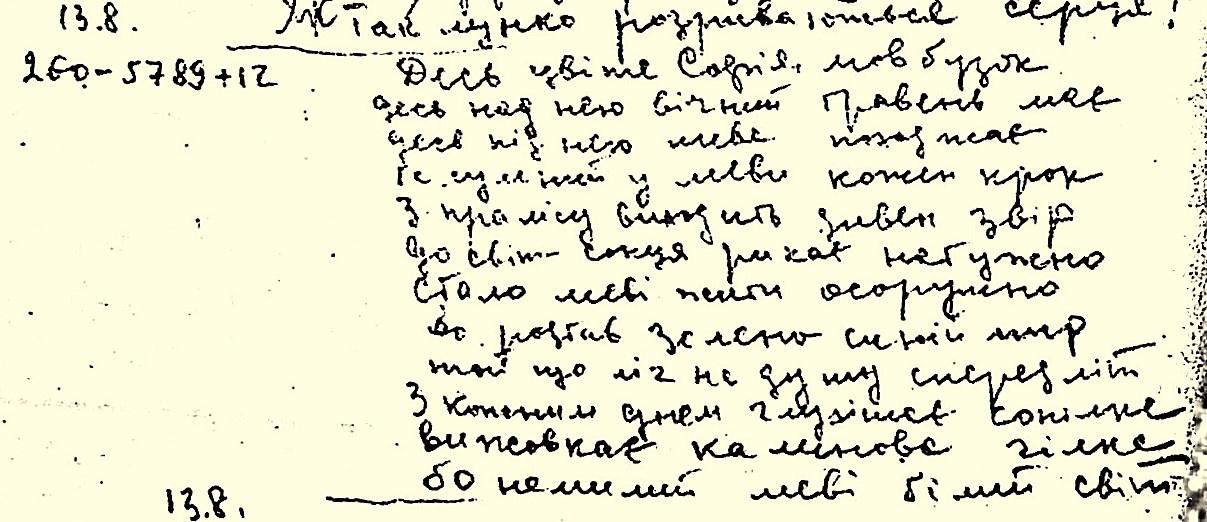 13.8. Як так лунко розриваються серця!
260-5789+12
Десь цвіте Софія, мов бузок
десь над нею вічний травень має
десь під нею лева походжає
і сумний у лева кожен крок
З пралісу виходить дивен звір
до світ-сонця рикає натужно
стало леві жити осоружно
бо розтав зелено синій мир
той що ліг на душу серед літ
З кожним днем глухішає сопілка
вижовкає калинова гілка
бо немилий леві білий світ
13.8.